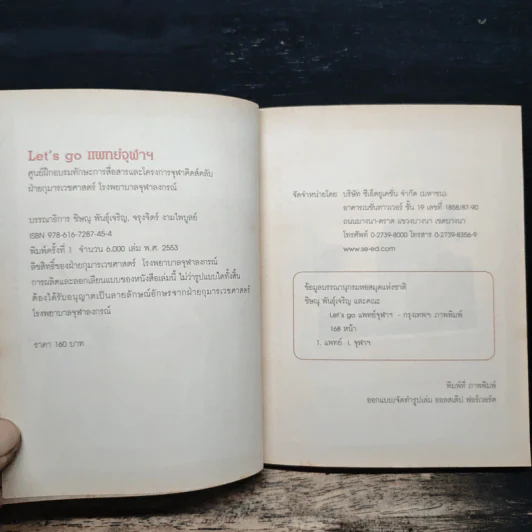 Let's go แพทย์จุฬาฯ
ศูนย์ฝึกอบรมทักษะการสื่อสารและโครงการจุฬาคิดส์คลับ
ฝ่ายกุมารเวชศาสตร์ โรงพยาบาลจุฬาลงกรณ์
บรรณาธิการ ชิษณุ พันธุ์เจริญ, จรุงจิตร์ งามไพบูลย์
ISBN 978-616-7287-45-4
พิมพ์ครั้งที่ 1 จำนวน 6,000 เล่ม พ.ศ. 2553
ลิขสิทธิ์ของฝ่ายกุมารเวชศาสตร์ โรงพยาบาลจุฬาลงกรณ์
การผลิตและลอกเลียนแบบของหนังสือเล่มนี้ ไม่ว่ารูปแบบใดทั้งสิ้น
ต้องได้รับอนุญาตเป็นลายลักษณ์อักษรจากฝ่ายกุมารเวชศาสตร์
โรงพยาบาลจุฬาลงกรณ์
ราคา 160 บาท
จัดจำหน่ายโดย บริษัท ซีเอ็ดยูเคชั่น จำกัด (มหาชน)
อาคารเนชั่นทาวเวอร์ ชั้น 19 เลขที่ 1858/87-90
ถนนบางนา-ตราด แขวงบางนา เขตบางนา
โทรศัพท์ 0-2739-8000 โทรสาร 0-2739-8356-9
www.se-ed.com
ข้อมูลบรรณานุกรมหอสมุดแห่งชาติ
ชิษณุ พันธุ์เจริญ และคณะ
Let's go แพทย์จุฬาฯ - กรุงเทพฯ ภาพพิมพ์
168 หน้า
1. แพทย์ I. จุฬาฯ
พิมพ์ที่ ภาพพิมพ์
ออกแบบ/จัดทำรูปเล่ม ออลสเต็ป ฟอร์เวอร์ด